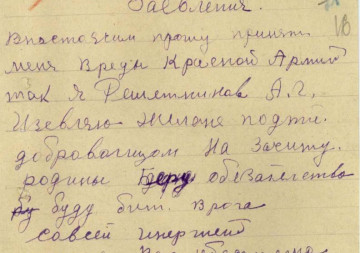 Заевления.
18
Внастоящим прошу принять
меня Вреды Красной Армий
так я Решеткинова А.Г.
Изевляю Желаня поджи
добраващом На Зачиту.
родины Беру обезателства
бу буду бит. Врага
савсей Инергией